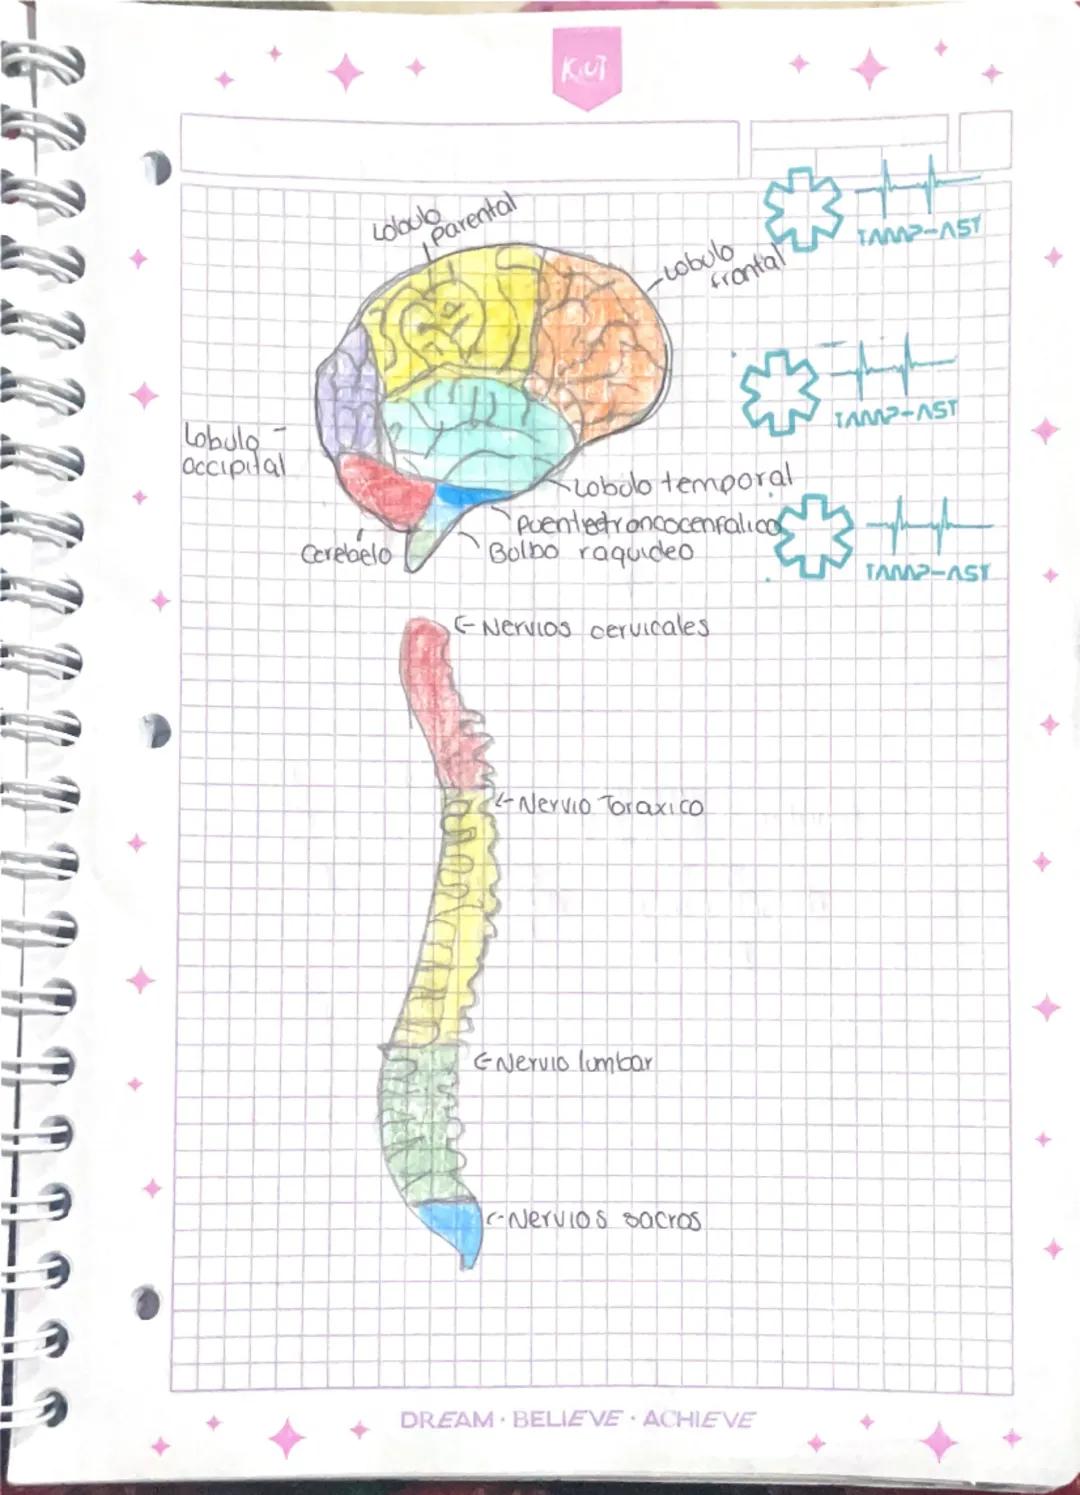 KIUT
Lobulo
Parental
Lobulo
frontal
TAMP-AST
TAMP-AST
Lobulo
occipital
Lobulo temporal
Puenletroncocenfalico
Cerebelo
Bolbo raquideo
TAMP-AST
Nervios cervicales
Nervio Toraxico
Nervio lumbar
Nervios sacros
DREAM · BELIEVE · ACHIEVE